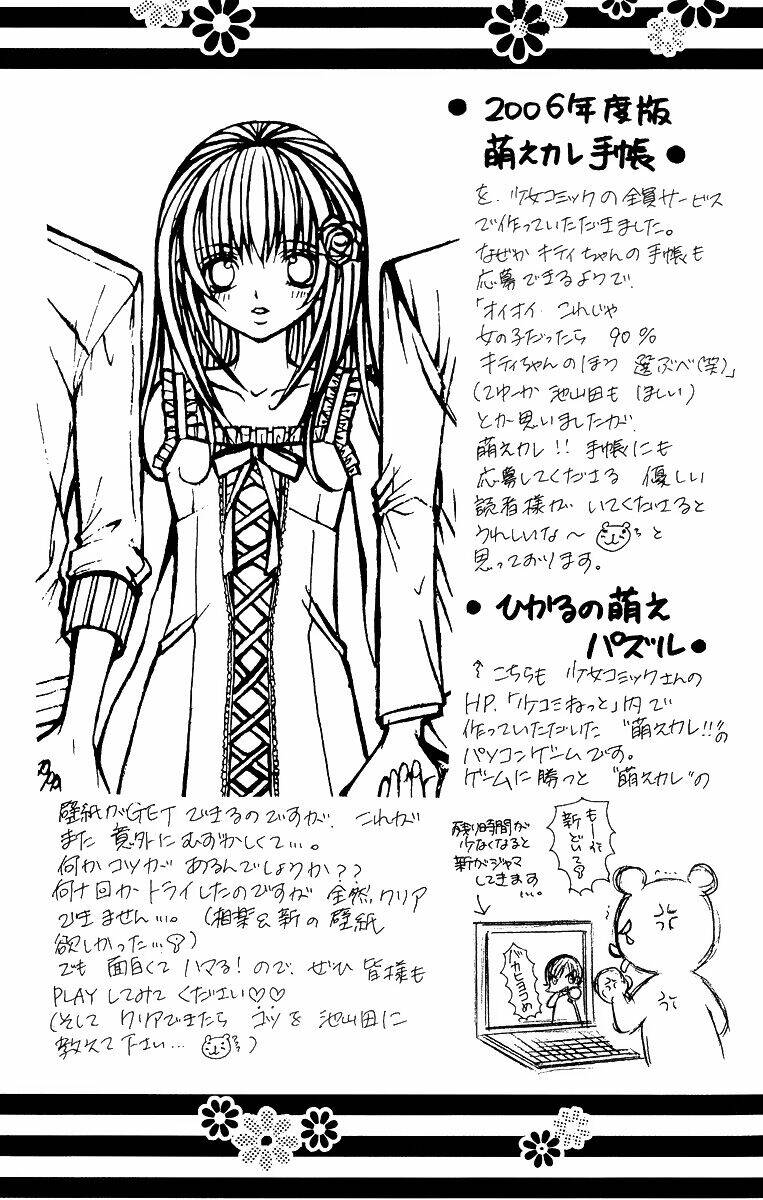 ● 2006年度版
萌えカレ手帳 ●
を、少女コミックの全員サービス
で作っていただきました。
なぜか キティちゃんの手帳も
応募できるようで、
「オイオイ これじゃ
女の子だったら 90%
キティちゃんのほう 選ぶべ(笑)」
(てゆーか 池山田も ほしい)
とか思いましたが、
萌えカレ!! 手帳にも
応募してくださる 優しい
読者様が いてくださると
うれしいな〜 と
思っております。
● ひかるの萌え
パズル ●
↑こちらも 少女コミックさんの
HP、「少コミねっと」内で
作っていただいた "萌えカレ!!"の
パソコンゲームです。
ゲームに勝つと "萌えカレ"の
壁紙がGET できるのですが、これが
また 意外にむずかしくて…。
何かコツが あるんでしょうか??
何十回かトライしたのですが 全然クリア
できません…。(相楽&新の壁紙
欲しかった…)
でも 面白くて ハマる!ので、ぜひ 皆様も
PLAYしてみて ください♡♡
(そして クリアできたら コツを 池山田に
教えて下さい… )
残り時間が
少なくなると
新がジャマ
してきます
…。
もーっ
新
どいて
バカヒヨコめ